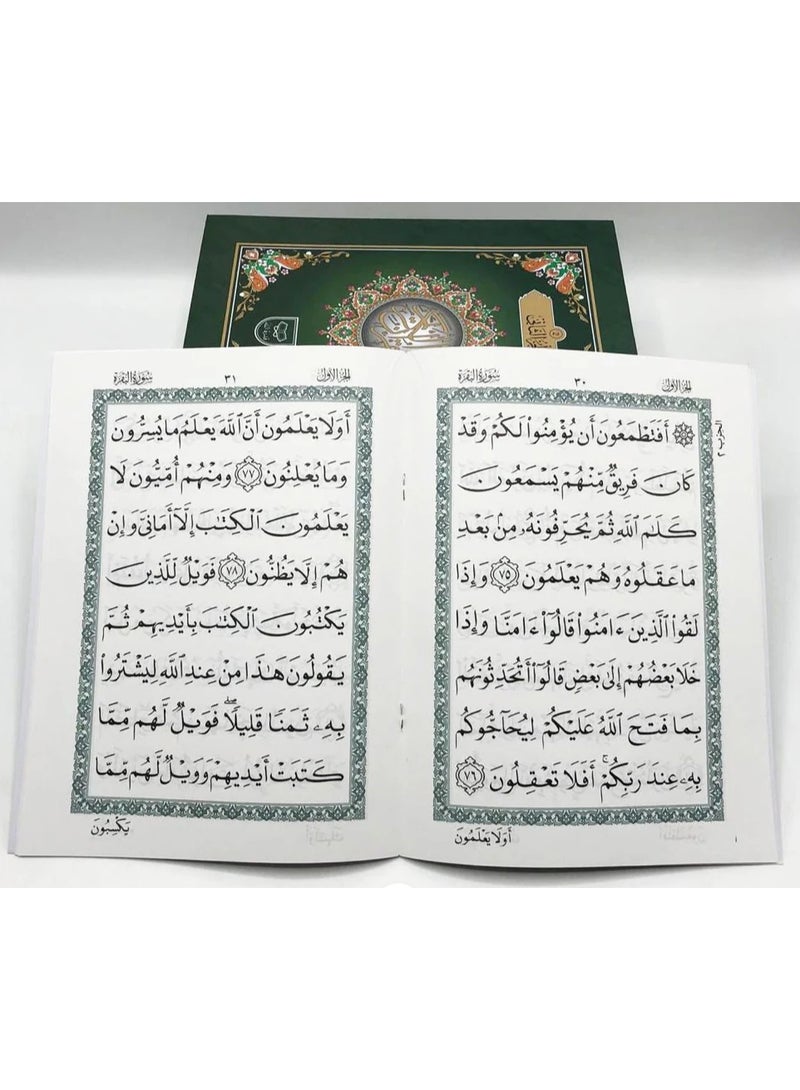 الجزء الأول
٣٠
سورة البقرة
الحزب ٢
۞ أَفَتَطْمَعُونَ أَن يُؤْمِنُوا۟ لَكُمْ وَقَدْ
كَانَ فَرِيقٌ مِّنْهُمْ يَسْمَعُونَ
كَلَٰمَ اللَّهِ ثُمَّ يُحَرِّفُونَهُۥ مِنۢ بَعْدِ
مَا عَقَلُوهُ وَهُمْ يَعْلَمُونَ ٧٥ وَإِذَا
لَقُوا۟ الَّذِينَ ءَامَنُوا۟ قَالُوٓا۟ ءَامَنَّا وَإِذَا
خَلَا بَعْضُهُمْ إِلَىٰ بَعْضٍ قَالُوٓا۟ أَتُحَدِّثُونَهُم
بِمَا فَتَحَ اللَّهُ عَلَيْكُمْ لِيُحَآجُّوكُم
بِهِۦ عِندَ رَبِّكُمْ ۚ أَفَلَا تَعْقِلُونَ ٧٦
أَوَلَا يَعْلَمُونَ
١
الجزء الأول
٣١
سورة البقرة
أَوَلَا يَعْلَمُونَ أَنَّ اللَّهَ يَعْلَمُ مَا يُسِرُّونَ
وَمَا يُعْلِنُونَ ٧٧ وَمِنْهُمْ أُمِّيُّونَ لَا
يَعْلَمُونَ الْكِتَٰبَ إِلَّآ أَمَانِىَّ وَإِنْ
هُمْ إِلَّا يَظُنُّونَ ٧٨ فَوَيْلٌ لِّلَّذِينَ
يَكْتُبُونَ الْكِتَٰبَ بِأَيْدِيهِمْ ثُمَّ
يَقُولُونَ هَٰذَا مِنْ عِندِ اللَّهِ لِيَشْتَرُوا۟
بِهِۦ ثَمَنًا قَلِيلًا ۖ فَوَيْلٌ لَّهُم مِّمَّا
كَتَبَتْ أَيْدِيهِمْ وَوَيْلٌ لَّهُم مِّمَّا
يَكْسِبُونَ